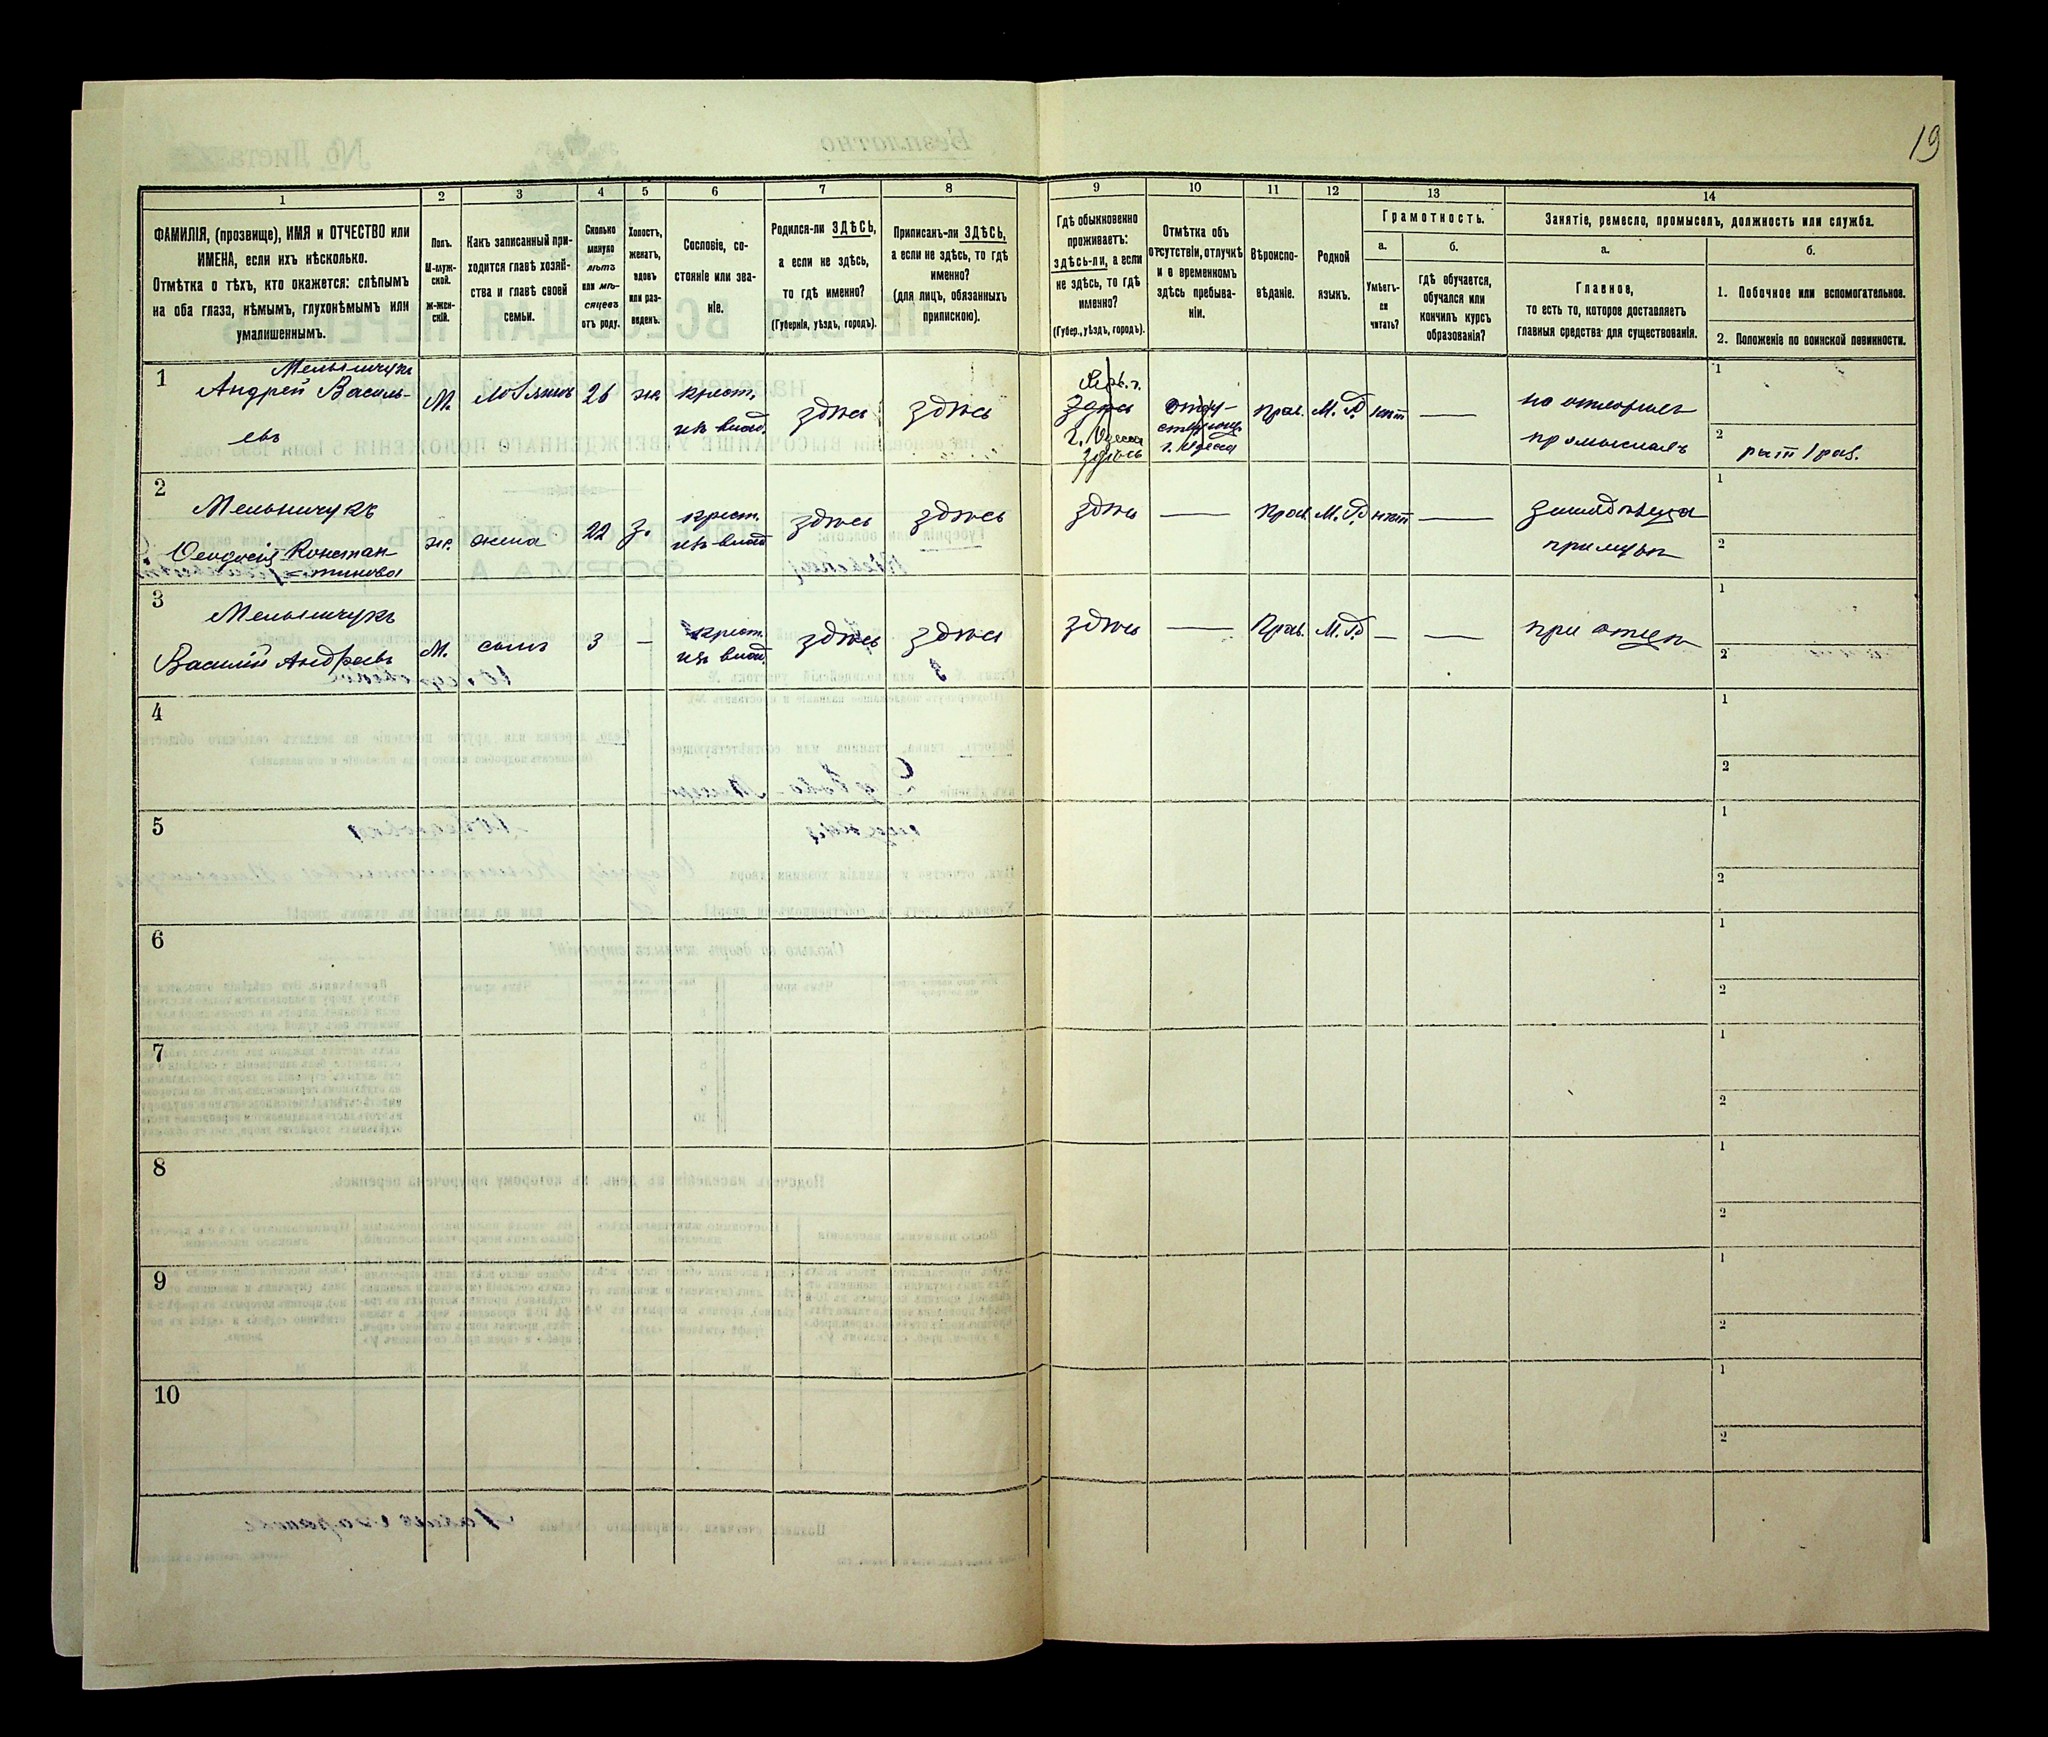 19
1
2
3
4
5
6
7
8
9
10
11
12
13
14
ФАМИЛІЯ, (прозвище), ИМЯ и ОТЧЕСТВО или
ИМЕНА, если ихъ нѣсколько.
Отмѣтка о тѣхъ, кто окажется: слѣпымъ
на оба глаза, нѣмымъ, глухонѣмымъ или
умалишеннымъ.
Полъ.
М-муж-
ской.
Ж-жен-
скій.
Какъ записанный при-
ходится главѣ хозяй-
ства и главѣ своей
семьи.
Сколько
минуло
лѣтъ
или мѣ-
сяцевъ
отъ роду.
Холостъ,
женатъ,
вдовъ
или раз-
веденъ.
Сословіе, со-
стояніе или зва-
ніе.
Родился-ли ЗДѢСЬ,
а если не здѣсь,
то гдѣ именно?
(Губернія, уѣздъ, городъ).
Приписанъ-ли ЗДѢСЬ,
а если не здѣсь, то гдѣ
именно?
(для лицъ, обязанныхъ
припискою).
Гдѣ обыкновенно
проживаетъ:
здѣсь-ли, а если
не здѣсь, то гдѣ
именно?
(Губер., уѣздъ, городъ).
Отмѣтка объ
отсутствіи, отлучкѣ
и о временномъ
здѣсь пребыва-
ніи.
Вѣроиспо-
вѣданіе.
Родной
языкъ.
Грамотность.
а.
б.
Умѣетъ-
ли
читать?
гдѣ обучается,
обучался или
кончилъ курсъ
образованія?
Занятіе, ремесло, промыселъ, должность или служба.
а.
б.
Главное,
то есть то, которое доставляетъ
главныя средства для существованія.
1. Побочное или вспомогательное.
2. Положеніе по воинской повинности.
1
Мельничукъ
Андрей Василь-
евъ
М.
хозяинъ
26
ж.
крест.
изъ влад.
здѣсь
здѣсь
здѣсь
г. Одесса
здѣсь
отсу-
ствующ.
г. Одесса
прав.
М. Р.
нѣт
—
на отхожихъ
промыслахъ
1
2
рат. 1 раз.
2
Мельничукъ
Ѳеодосія Констан-
тинова
ж.
жена
22
з.
крест.
изъ влад.
здѣсь
здѣсь
здѣсь
—
Прав.
М. Р.
нѣт
—
земледѣлица
при мужѣ
1
2
3
Мельничукъ
Василій Андреевъ
М.
сынъ
3
—
крест.
изъ влад.
здѣсь
здѣсь
здѣсь
—
Прав.
М. Р.
—
—
при отцѣ
1
2
4
1
2
5
1
2
6
1
2
7
1
2
8
1
2
9
1
2
10
1
2